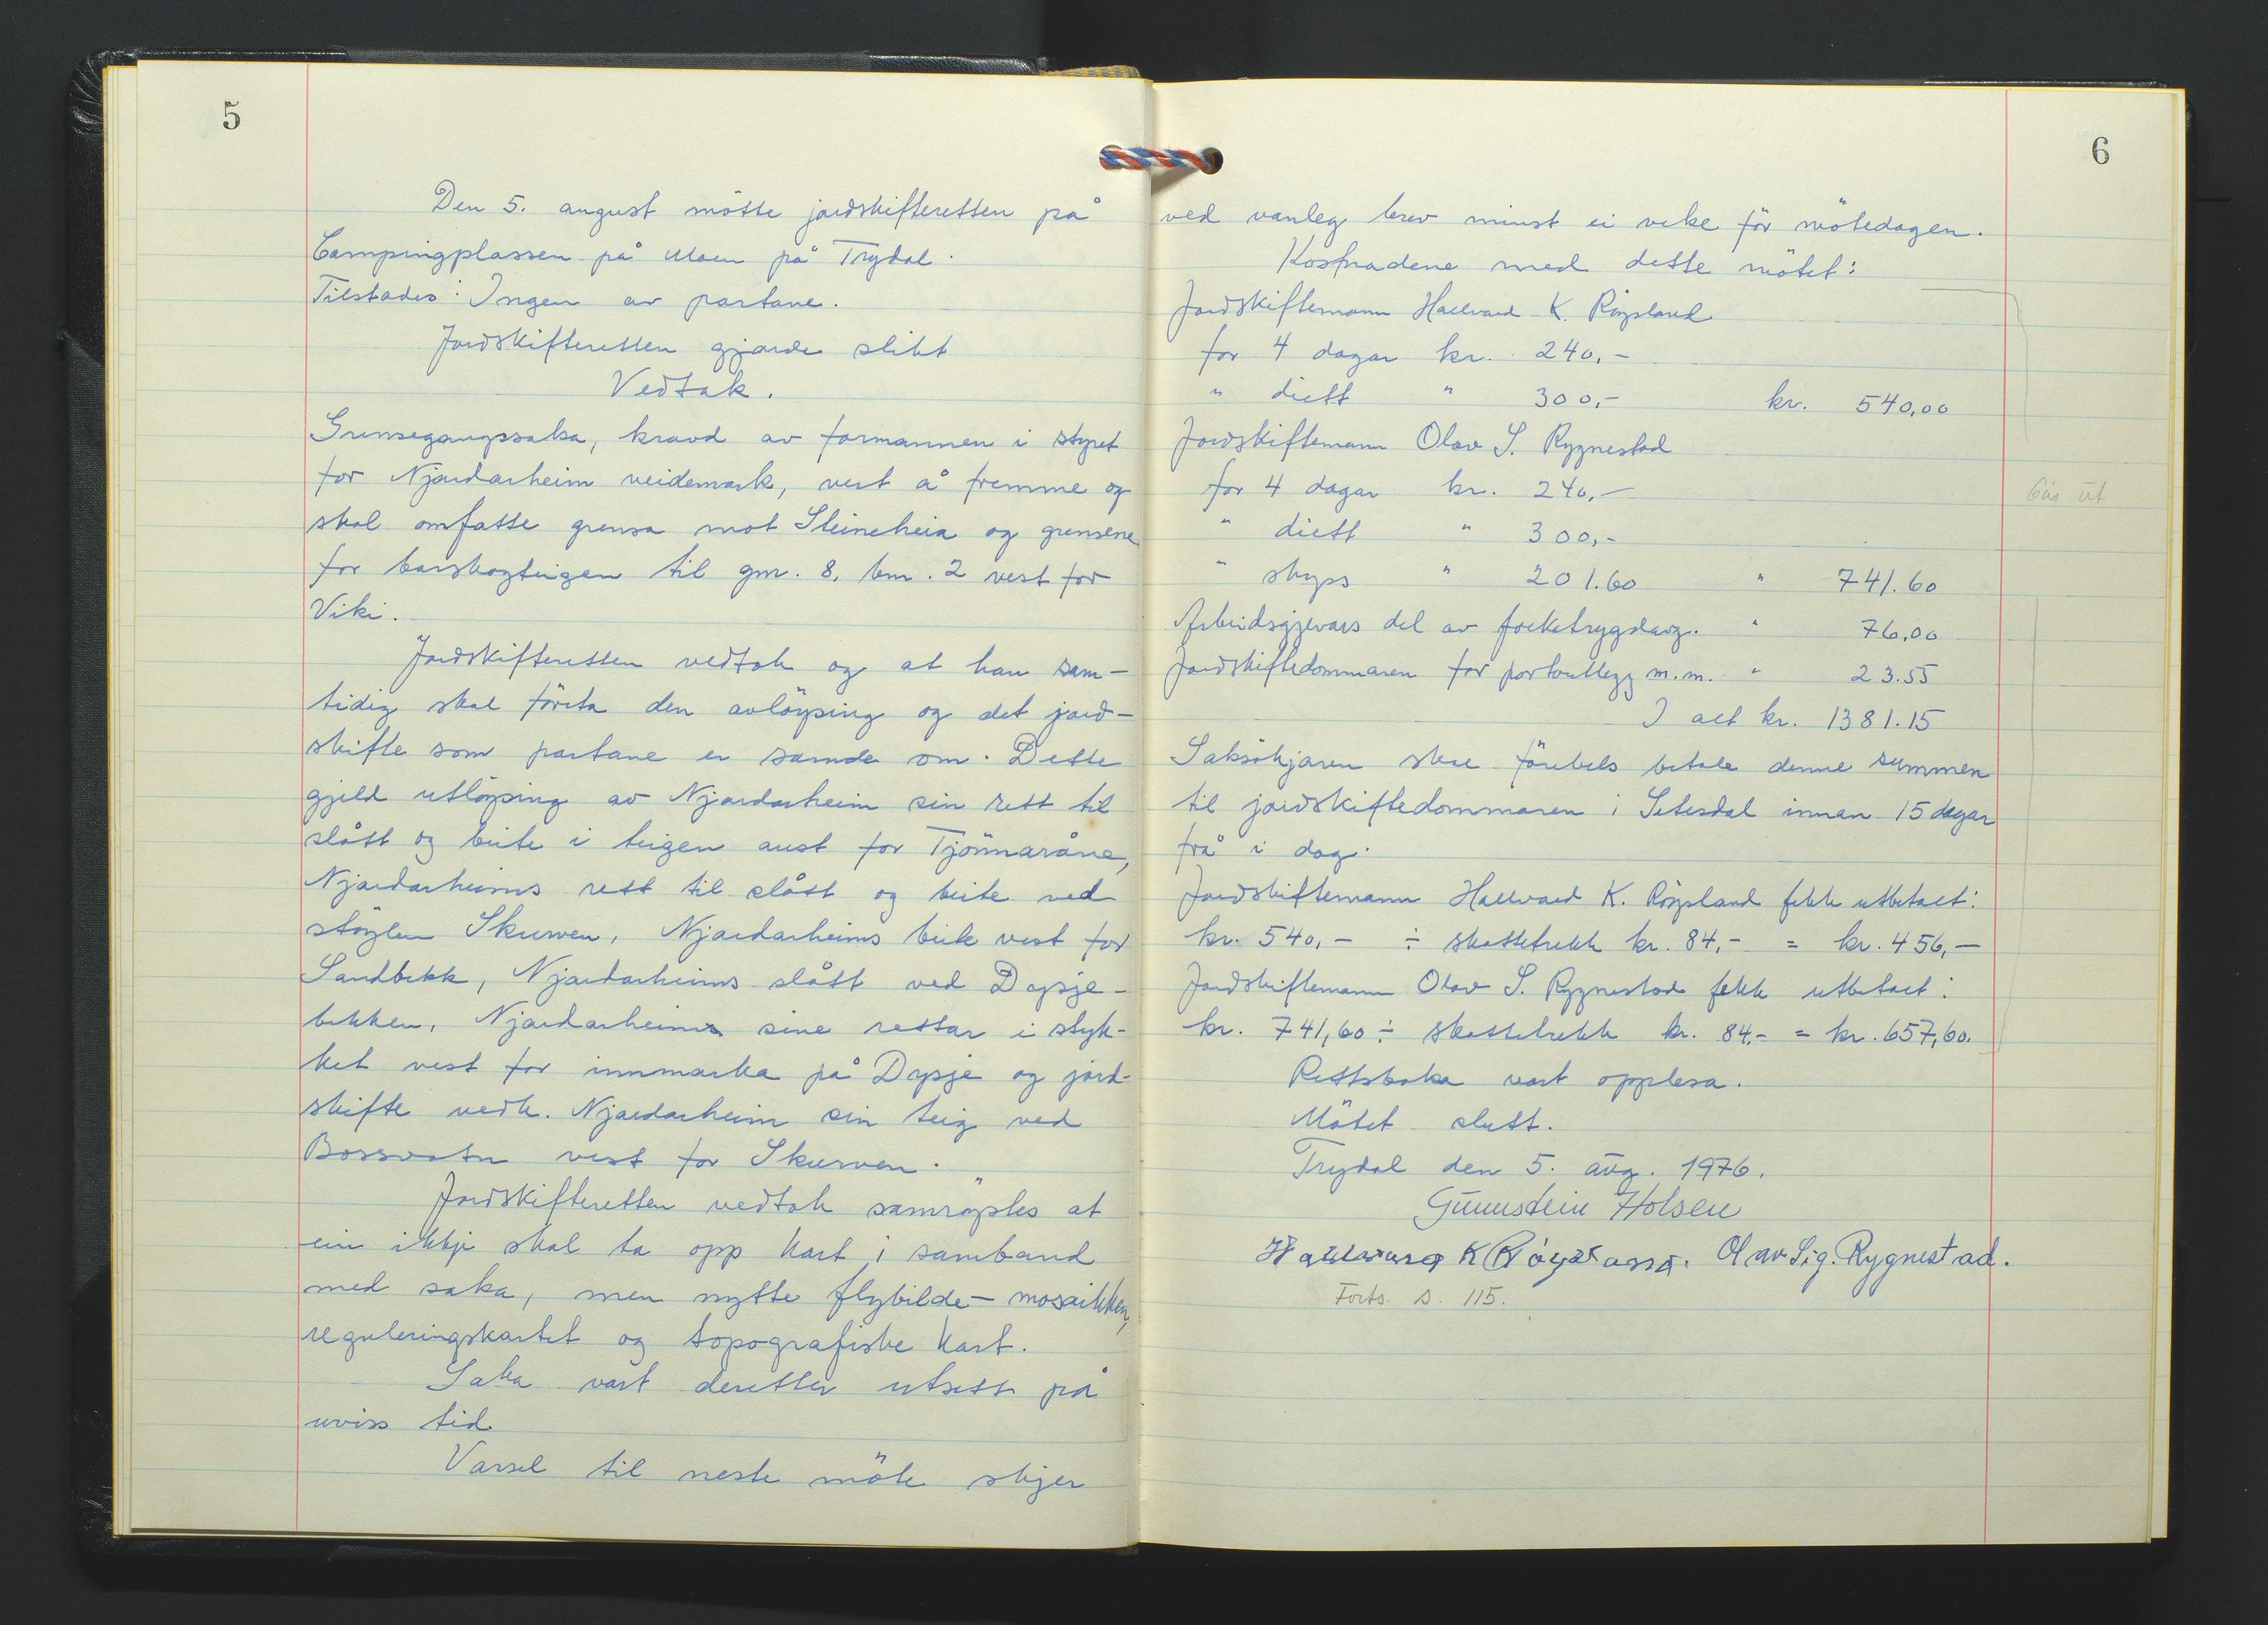 5
Den 5. august mötte jordskifteretten på
Campingplassen på Moen på Trydal.
Tilstades: Ingen av partane.
Jordskifteretten gjorde slikt
Vedtak.
Grensegangssaka, kravd av formannen i styret
for Njardarheim veidemark, vert å fremme og
skal omfatte grensa mot Steineheia og grensene
for barskogteigen til gnr. 8, bnr. 2 vest for
Viki.
Jordskifteretten vedtok og at han sam-
tidig skal företa den avlöysing og det jord-
skifte som partane er samde om. Dette
gjeld utlöysing av Njardarheim sin rett til
slått og beite i teigen aust for Tjönnaråne,
Njardarheims rett til slått og beite ved
stöylen Skurven, Njardarheims beite vest for
Sandbekk, Njardarheims slått ved Dysje-
bekken, Njardarheims sine rettar i styk-
ket vest for innmarka på Dysje og jord-
skifte vedk. Njardarheim sin teig ved
Bossvatn vest for Skurven.
Jordskifteretten vedtok samröystes at
ein ikkje skal ta opp kart i samband
med saka, men nytte flybilde-mosaikken,
reguleringskartet og topografiske kart.
Saka vart deretter utsett på
uviss tid.
Varsel til neste möte skjer
6
ved vanleg brev minst ei veke för mötedagen.
Kostnadene med dette mötet:
Jordskiftemann Hallvard K. Röysland
for 4 dagar kr. 240,-
" diett " 300,- kr. 540,00
Jordskiftemann Olav S. Rygnestad
for 4 dagar kr. 240,-
Går ut
" diett " 300,-
" skyss " 201.60 " 741.60
Arbeidsgjevars del av folketrygdavg. " 76,00
Jordskiftedommaren for portoutlegg m.m. " 23.55
I alt kr. 1381.15
Saksökjaren skal förebels betale denne summen
til jordskiftedommaren i Setesdal innan 15 dagar
frå i dag.
Jordskiftemann Hallvard K. Röysland fekk utbetalt:
kr. 540,- ÷ skattetrekk kr. 84,- = kr. 456,-
Jordskiftemann Olav S. Rygnestad fekk utbetalt:
kr. 741,60 ÷ skattetrekk kr. 84.- = kr. 657,60.
Rettsboka vart opplesa.
Mötet slutt.
Trydal den 5. aug. 1976.
Gunnstein Holsen
Hallvard K Röysland. Olav Sig. Rygnestad.
Forts. s. 115.